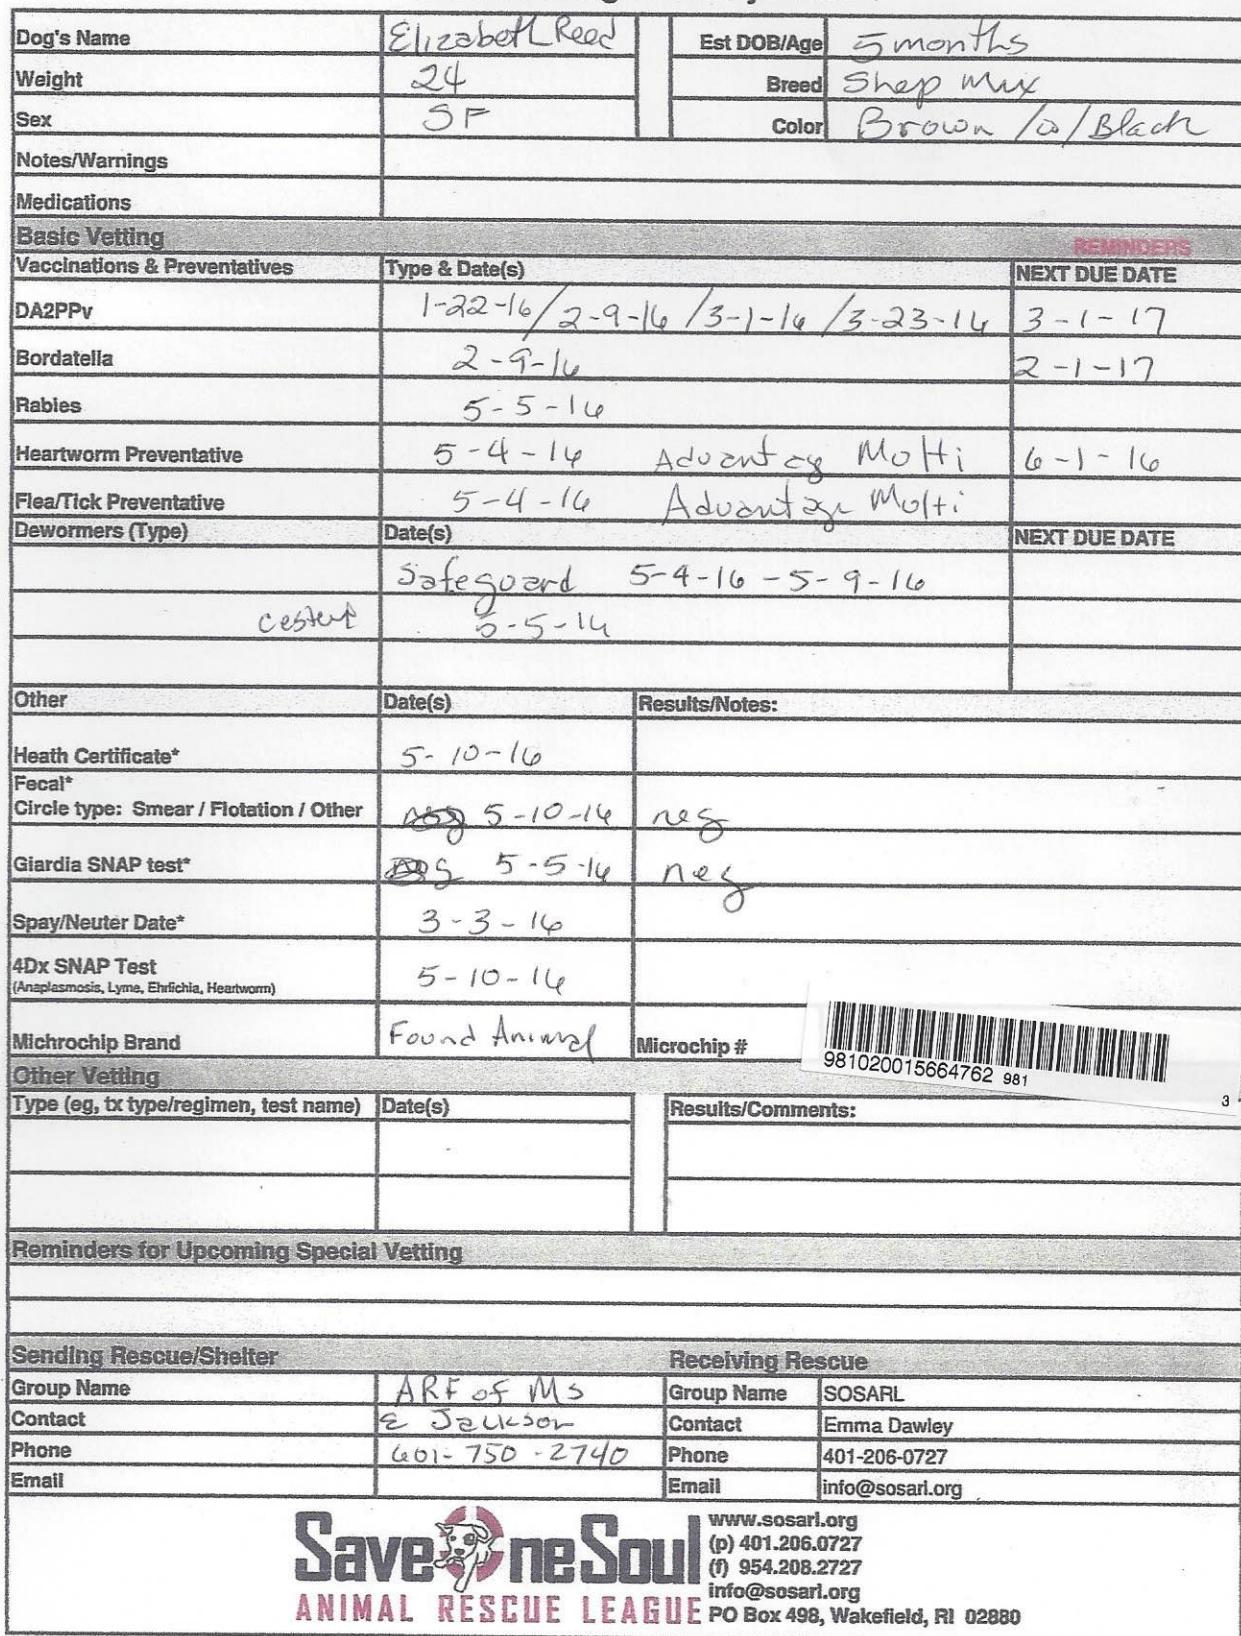 Dog's Name Elizabeth Reed Est DOB/Age 5 months
Weight 24 Breed Shep Mix
Sex SF Color Brown /w/Black
Notes/Warnings
Medications
Basic Vetting REMINDERS
Vaccinations & Preventatives Type & Date(s) NEXT DUE DATE
DA2PPv 1-22-16/2-9-16/3-1-16/3-23-16 3-1-17
Bordatella 2-9-16 2-1-17
Rabies 5-5-16
Heartworm Preventative 5-4-16 Advantag Molti 6-1-16
Flea/Tick Preventative 5-4-16 Advantage Molti
Dewormers (Type) Date(s) NEXT DUE DATE
Safeguard 5-4-16 - 5-9-16
5-5-16
Other Date(s) Results/Notes:
Heath Certificate* 5-10-16
Fecal*
Circle type: Smear / Flotation / Other 5-10-16 neg
Giardia SNAP test* 5-5-16 neg
Spay/Neuter Date* 3-3-16
4Dx SNAP Test 5-10-16
(Anaplasmosis, Lyme, Ehrlichia, Heartworm)
Michrochip Brand Found Animal Microchip # 981020015664762 981
3
Other Vetting
Type (eg, tx type/regimen, test name) Date(s) Results/Comments:
Reminders for Upcoming Special Vetting
Sending Rescue/Shelter Receiving Rescue
Group Name ARF of Ms Group Name SOSARL
Contact E Jackson Contact Emma Dawley
Phone 601-750-2740 Phone 401-206-0727
Email Email info@sosarl.org
Save One Soul
ANIMAL RESCUE LEAGUE
www.sosarl.org
(p) 401.206.0727
(f) 954.208.2727
info@sosarl.org
PO Box 498, Wakefield, RI 02880